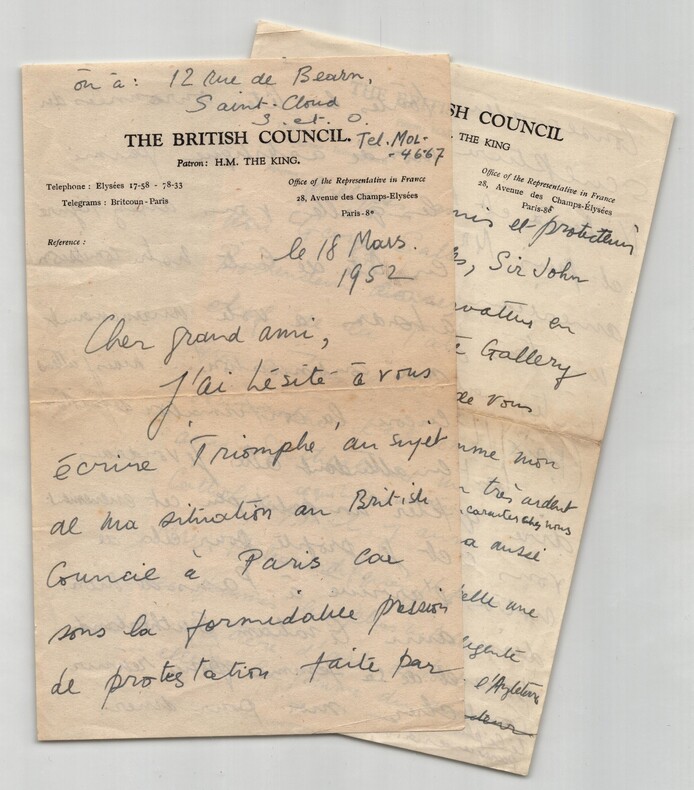 ou à : 12 rue de Bearn,
Saint-Cloud
S. et. O.
THE BRITISH COUNCIL. Tel. MOL-
- 4667
Patron: H.M. THE KING.
Telephone : Elysées 17-58 - 78-33
Telegrams : Britcoun-Paris
Office of the Representative in France
28, Avenue des Champs-Elysées
Paris-8e
Reference :
le 18 Mars.
1952
Cher grand ami,
J'ai hésité à vous
écrire "Triomphe" au sujet
de ma situation au British
Council à Paris car
sous la formidable pression
de protestation faite par
SH COUNCIL
. THE KING
Office of the Representative in France
28, Avenue des Champs-Élysées
Paris-8e
et protecteurs
, Sir John
en
Gallery
de vous
mon
très ardent
caractère chez nous
a aussi
elle une
l'Angleterre